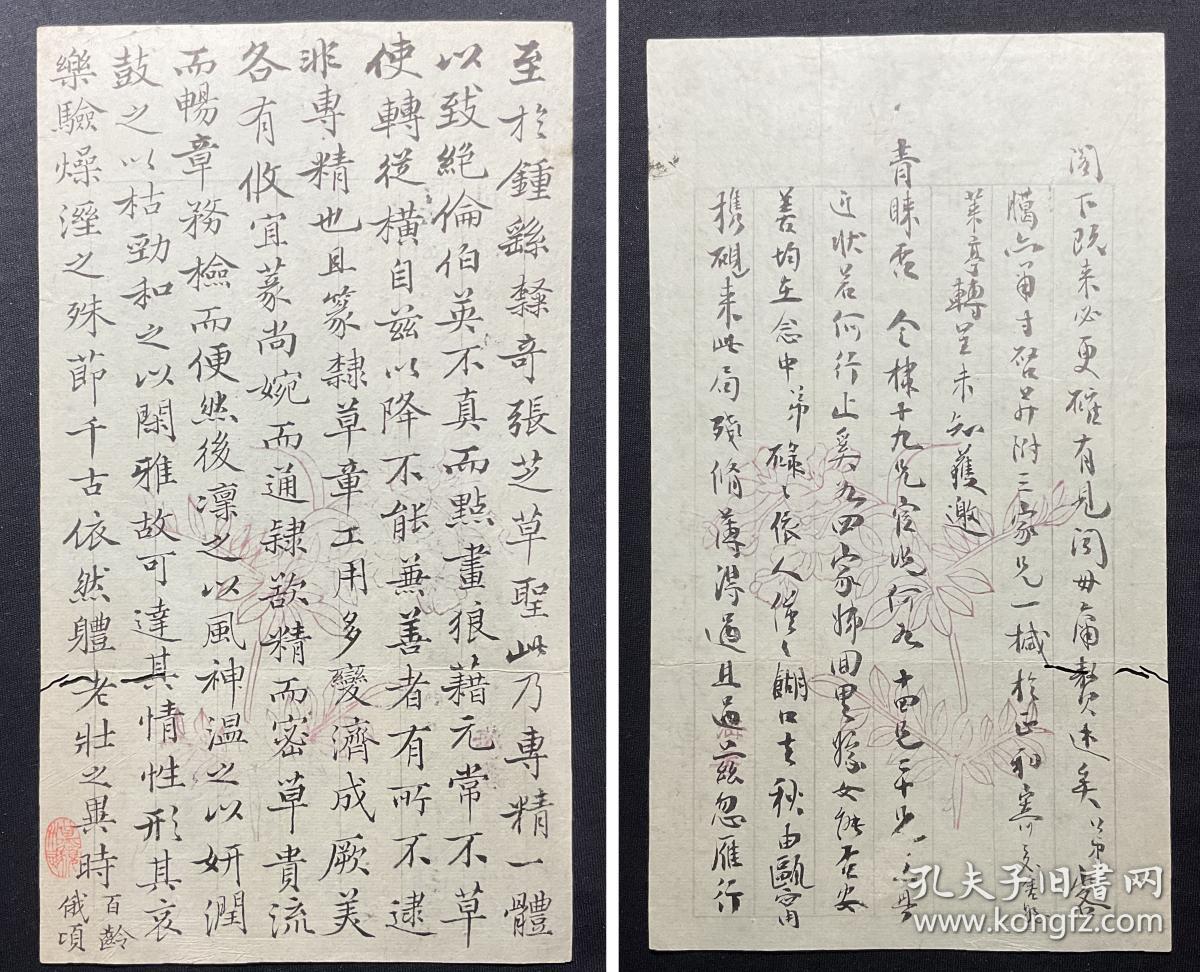 至於鍾繇隸奇張芝草聖此乃專精一體
以致絕倫伯英不真而點畫狼藉元常不草
使轉從橫自茲以降不能兼善者有所不逮
非專精也且篆隸草章工用多變濟成厥美
各有攸宜篆尚婉而通隸欲精而密草貴流
而暢章務檢而便然後凜之以風神溫之以妍潤
鼓之以枯勁和之以閑雅故可達其情性形其哀
樂驗燥溼之殊節千古依然體老壯之異時百齡
俄頃
閣下既來必更確有見聞毋庸贅述矣弟客
臘亦曾寸啓並附三家兄一椷於
萊亭轉呈未知獲邀
青睞否令棣十九兄官況何如十四兄
近狀若何行止奚如四家姊回里豫女能否安
善均在念中弟碌碌依人僅僅餬口去秋由甌甯
攜硯來此局殘脩薄得過且過茲忽雁行
孔夫子旧书网
www.kongfz.com